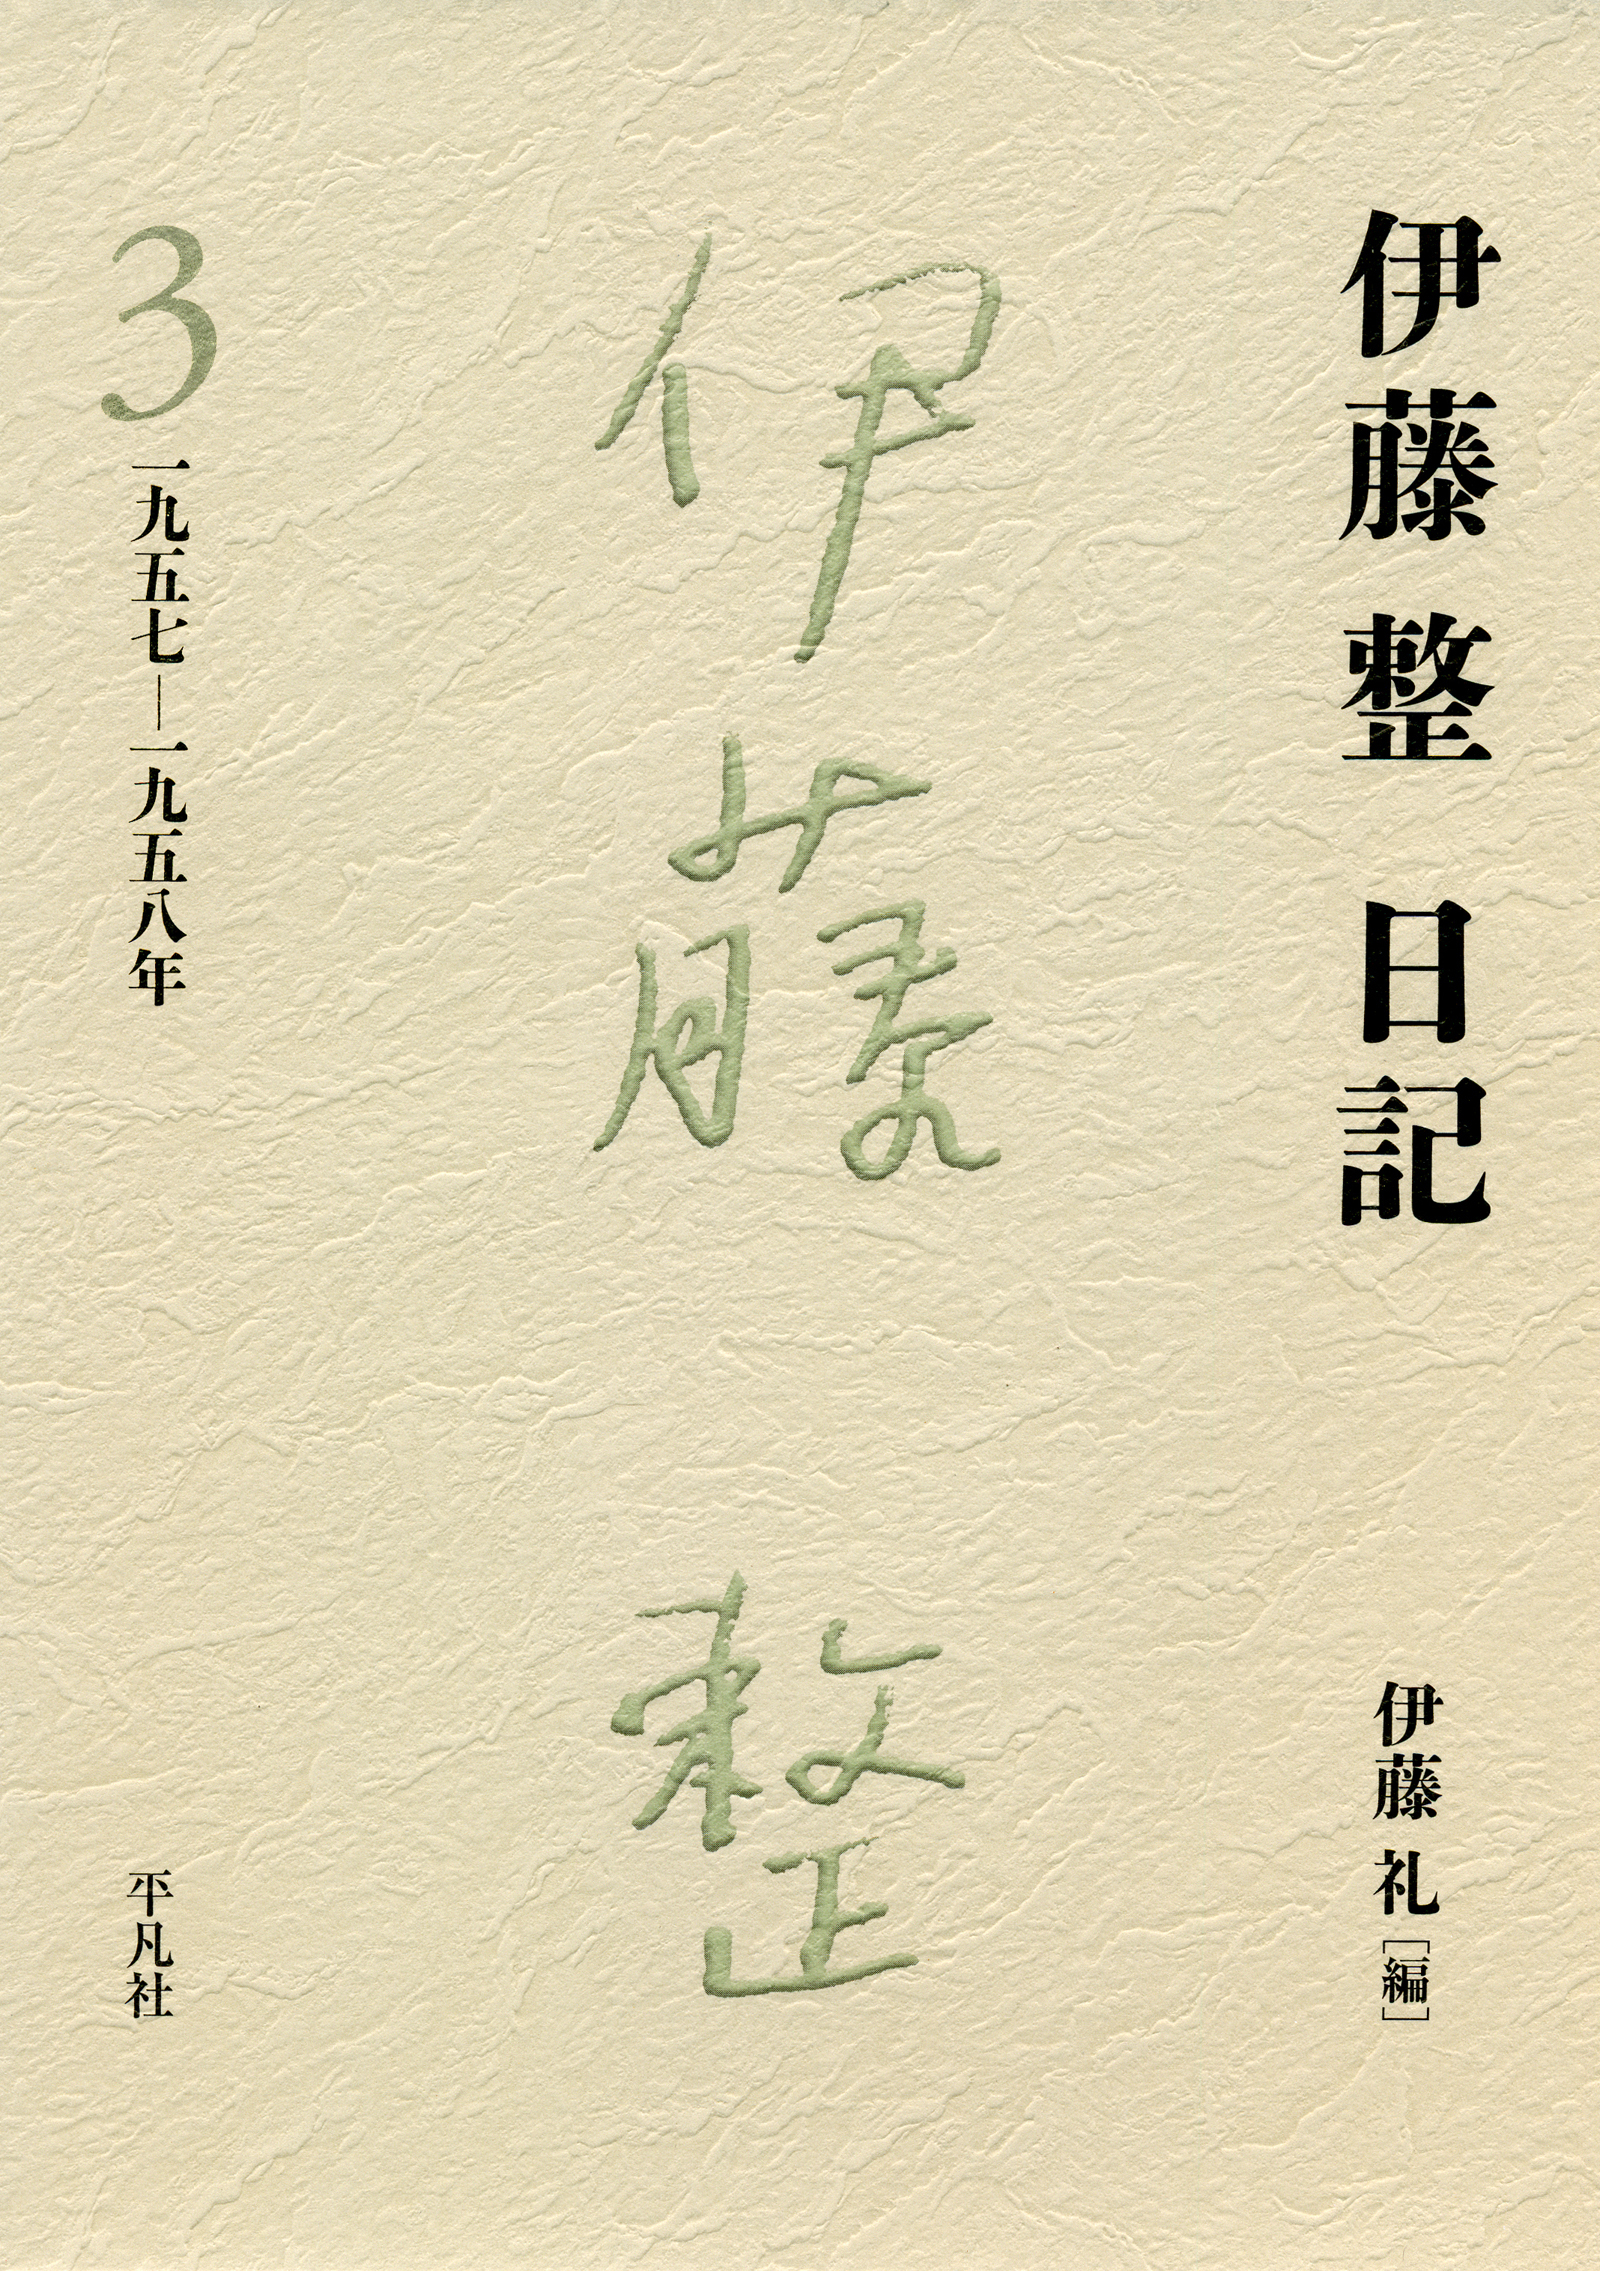 伊藤整 日記
伊藤 礼［編］
伊藤 整
3
一九五七―一九五八年
平凡社